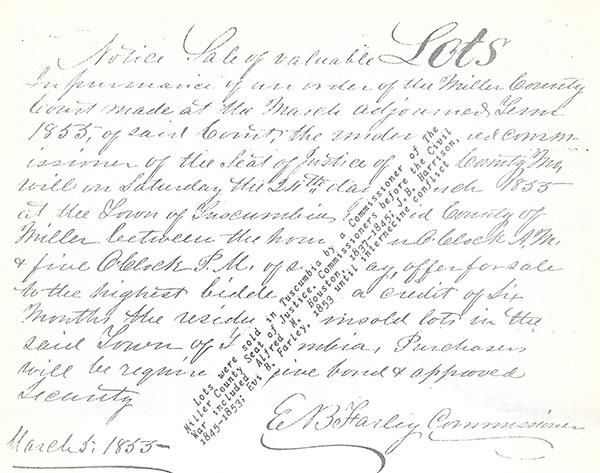 Notice Sale of valuable Lots
In pursuance of an order of the Miller County
Court made at the March adjourned Term
1855, of said Court, the under ed comm-
issioner of the Seat of Justice of County Mo,
will on Saturday the 24th day rch 1855
at the Town of Tuscumbia id County of
Miller between the hour n O'Clock A.M.
& five O'Clock P.M. of s ay, offer for sale
to the highest bidde a credit of Six
Months the residu unsold lots in the
said Town of T mbia, Purchasers
will be require give bond & approved
Security
E B Farley Commissioner
March 5. 1855
Lots were sold in Tuscumbia by a Commissioner of The
Miller County Seat of Justice. Commissioners before the Civil
War included Alfred M. Houston, 1837-1845; J.B. Harrison,
1845-1853; Evi B. Farley, 1853 until internecine conflict